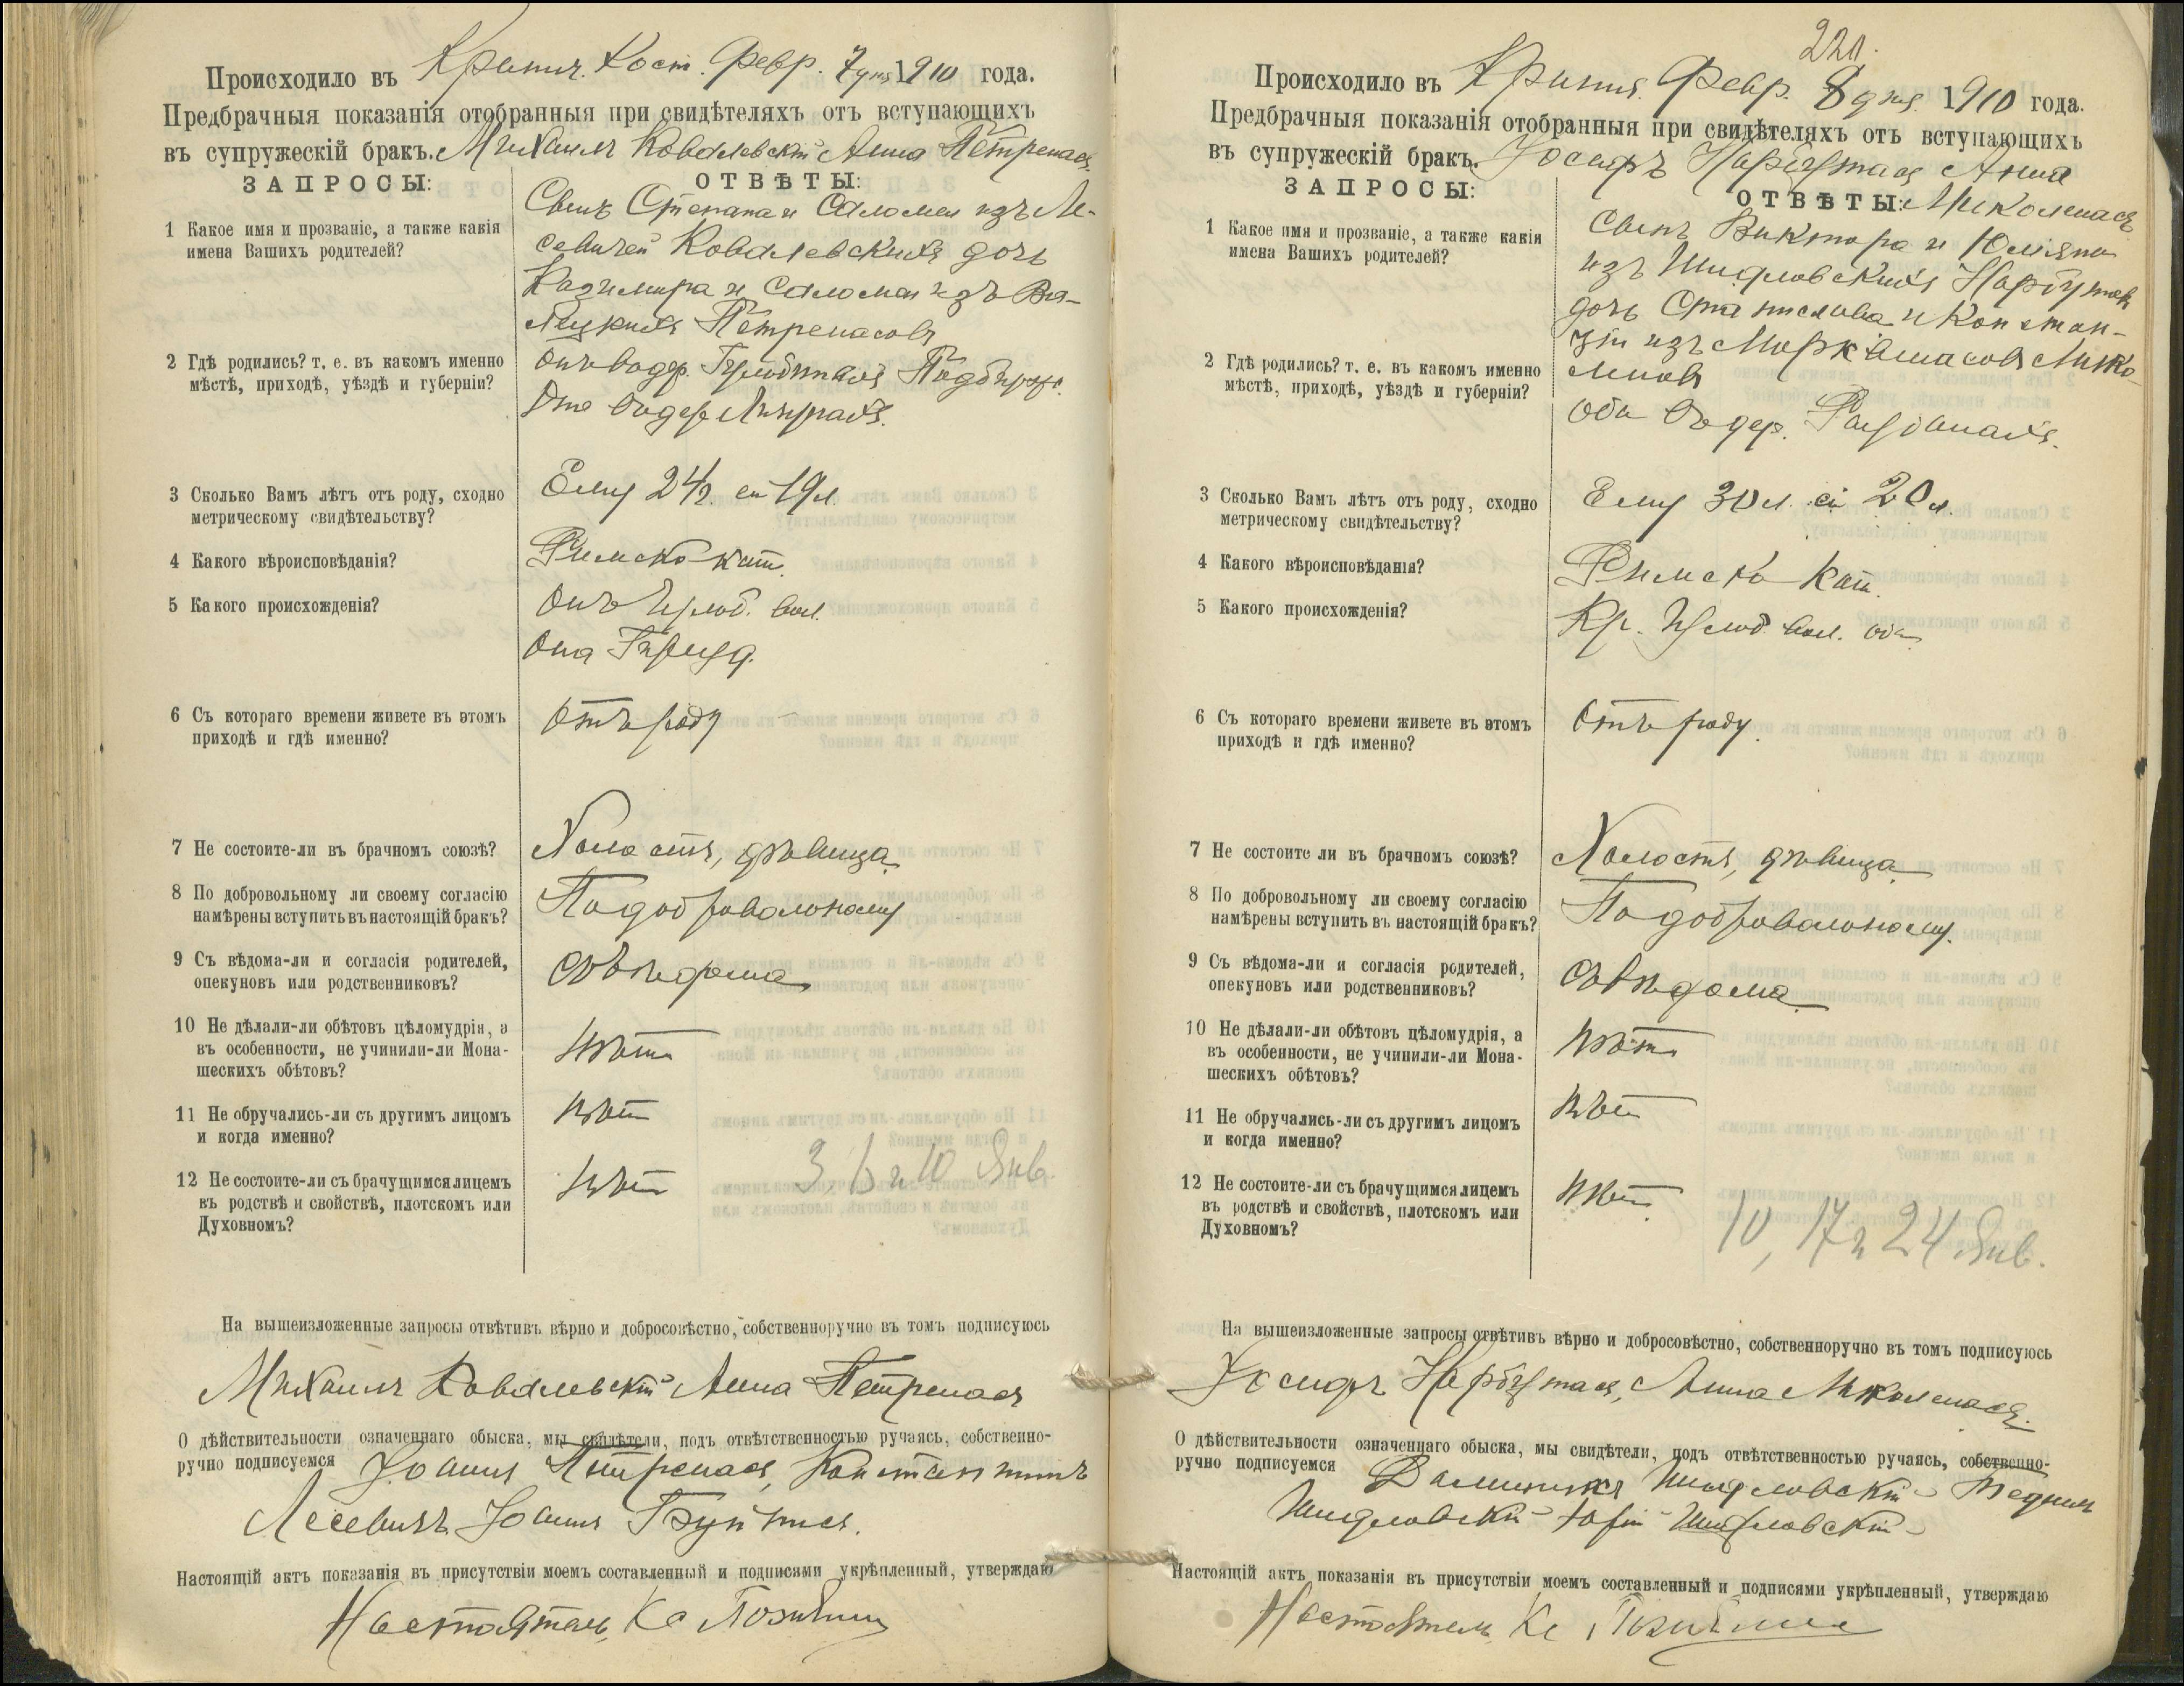 Происходило въ Кринч. Кост. Февр. 7 дня 1910 года.
Предбрачныя показанія отобранныя при свидѣтеляхъ отъ вступающихъ
въ супружескій бракъ. Михаилъ Ковалевскій Анна Петренасъ
ЗАПРОСЫ:
ОТВѢТЫ:
1 Какое имя и прозваніе, а также какія
имена Вашихъ родителей?
Сынъ Степана и Саломеи изъ Ле-
севичей Ковалевскихъ дочь
Казимира и Саломеи изъ
Петренасовъ
2 Гдѣ родились? т. е. въ какомъ именно
мѣстѣ, приходѣ, уѣздѣ и губерніи?
Онъ въ дер.
Она въ дер.
3 Сколько Вамъ лѣтъ отъ роду, сходно
метрическому свидѣтельству?
Ему 24 л. ей 19 л.
4 Какого вѣроисповѣданія?
Римско-кат.
5 Какого происхожденія?
Онъ вол.
Она
6 Съ котораго времени живете въ этомъ
приходѣ и гдѣ именно?
Отъ роду
7 Не состоите-ли въ брачномъ союзѣ?
Холостъ, дѣвица.
8 По добровольному ли своему согласію
намѣрены вступить въ настоящій бракъ?
По добровольному
9 Съ вѣдома-ли и согласія родителей,
опекуновъ или родственниковъ?
Съ вѣдома
10 Не дѣлали-ли обѣтовъ цѣломудрія, а
въ особенности, не учинили-ли Мона-
шескихъ обѣтовъ?
Нѣтъ
11 Не обручались-ли съ другимъ лицомъ
и когда именно?
Нѣтъ
12 Не состоите-ли съ брачущимся лицемъ
въ родствѣ и свойствѣ, плотскомъ или
Духовномъ?
Нѣтъ
3, 6 и 10 Янв.
На вышеизложенные запросы отвѣтивъ вѣрно и добросовѣстно, собственноручно въ томъ подписуюсь
Михаилъ Ковалевскій Анна Петренасъ
О дѣйствительности означеннаго обыска, мы свидѣтели, подъ отвѣтственностью ручаясь, собственно-
ручно подписуемся Іоаннъ Петренасъ, Константинъ
Лесевичъ Іоаннъ
Настоящій актъ показанія въ присутствіи моемъ составленный и подписями укрѣпленный, утверждаю
Настоятель Кс
220.
Происходило въ Кринч. Февр. 8 дня 1910 года.
Предбрачныя показанія отобранныя при свидѣтеляхъ отъ вступающихъ
въ супружескій бракъ. Іосифъ Нарбутасъ Анна
Миколенасъ
ЗАПРОСЫ:
ОТВѢТЫ:
1 Какое имя и прозваніе, а также какія
имена Вашихъ родителей?
Сынъ Виктора и Юліяны
изъ Шидловскихъ Нарбутовъ
дочь Станислава и Констан-
ціи изъ
2 Гдѣ родились? т. е. въ какомъ именно
мѣстѣ, приходѣ, уѣздѣ и губерніи?
Оба въ дер.
3 Сколько Вамъ лѣтъ отъ роду, сходно
метрическому свидѣтельству?
Ему 30 л. ей 20 л.
4 Какого вѣроисповѣданія?
Римско-кат.
5 Какого происхожденія?
Кр. вол. оба
6 Съ котораго времени живете въ этомъ
приходѣ и гдѣ именно?
Отъ роду
7 Не состоите ли въ брачномъ союзѣ?
Холостъ, дѣвица
8 По добровольному ли своему согласію
намѣрены вступить въ настоящій бракъ?
По добровольному.
9 Съ вѣдома-ли и согласія родителей,
опекуновъ или родственниковъ?
Съ вѣдома
10 Не дѣлали-ли обѣтовъ цѣломудрія, а
въ особенности, не учинили-ли Мона-
шескихъ обѣтовъ?
Нѣтъ
11 Не обручались-ли съ другимъ лицомъ
и когда именно?
Нѣтъ
12 Не состоите-ли съ брачущимся лицемъ
въ родствѣ и свойствѣ, плотскомъ или
Духовномъ?
Нѣтъ
10, 17 и 24 Янв.
На вышеизложенные запросы отвѣтивъ вѣрно и добросовѣстно, собственноручно въ томъ подписуюсь
Іосифъ Нарбутасъ, Анна Миколенасъ.
О дѣйствительности означеннаго обыска, мы свидѣтели, подъ отвѣтственностью ручаясь, собственно-
ручно подписуемся Доминикъ Шидловскій
Шидловскій Юрій Шидловскій
Настоящій актъ показанія въ присутствіи моемъ составленный и подписями укрѣпленный, утверждаю
Настоятель Кс